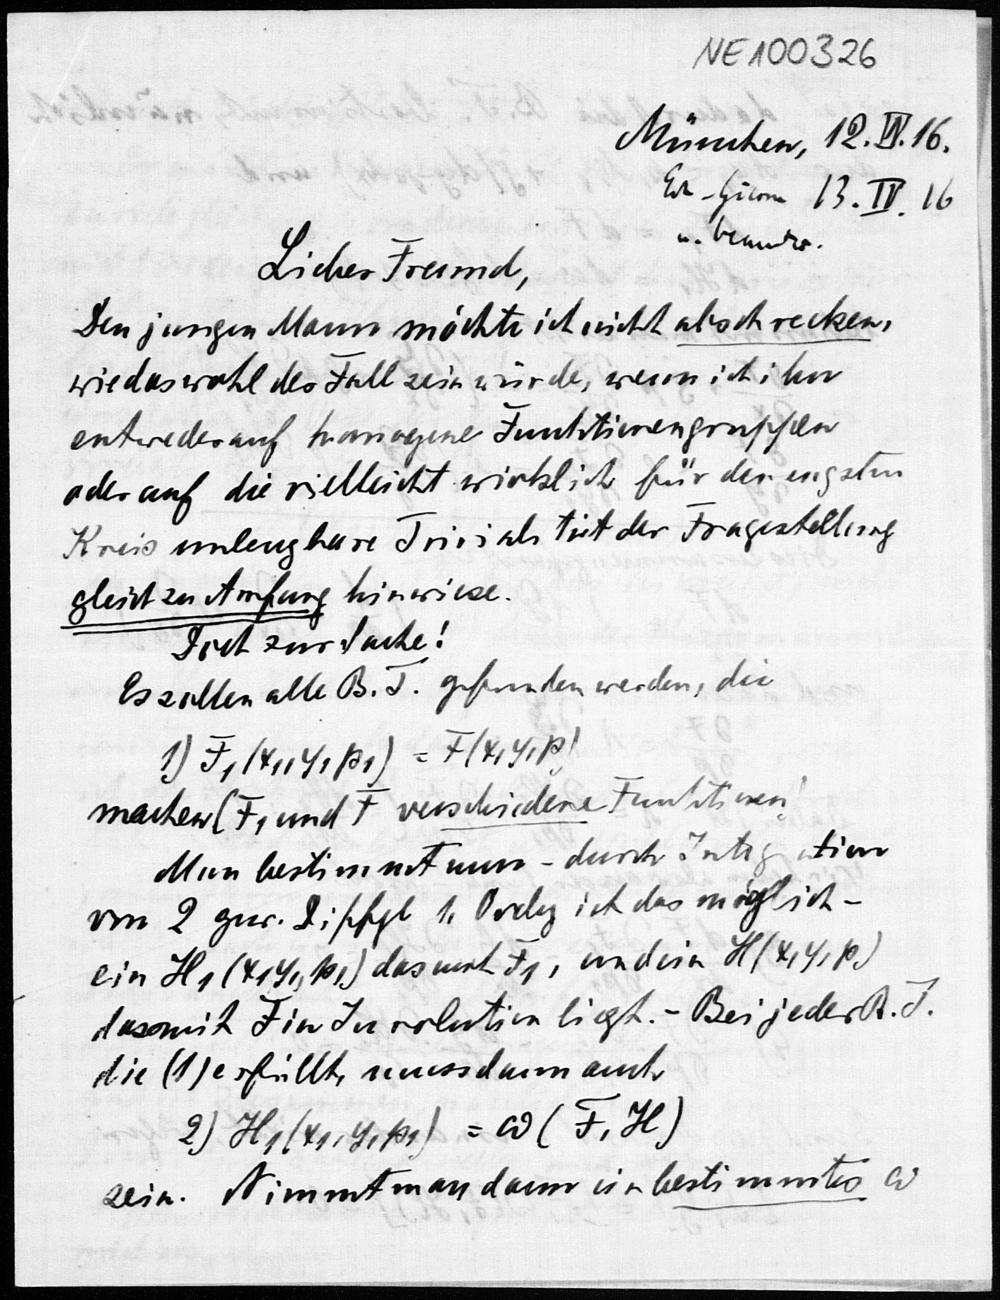 NE100326
München, 12. IV. 16.
13. IV. 16
Lieber Freund,
Den jungen Mann möchte ich nicht abschrecken,
wie das wohl der Fall sein würde, wenn ich ihn
entweder auf homogene Funktionengruppen
oder auf die vielleicht wirklich für den engsten
Kreis unleugbare Trivialität der Fragestellung
gleich zu Anfang hinwiese.
Doch zur Sache!
Es sollen alle B. T. gefunden werden, die
1) F₁(x₁,y₁,p₁) = F(x,y,p)
machen (F₁ und F verschiedene Funktionen)
Man bestimmt nun - durch Integration
von 2 gew. Diffgl 1. Ordg ist das möglich -
ein H₁(x₁,y₁,p₁) das mit F₁, und ein H(x,y,p)
das mit F in Involution liegt. - Bei jeder B. T.
die (1) erfüllt, muss dann auch
2) H₁(x₁,y₁,p₁) = ω(F, H)
sein. Nimmt man dann ein bestimmtes ω